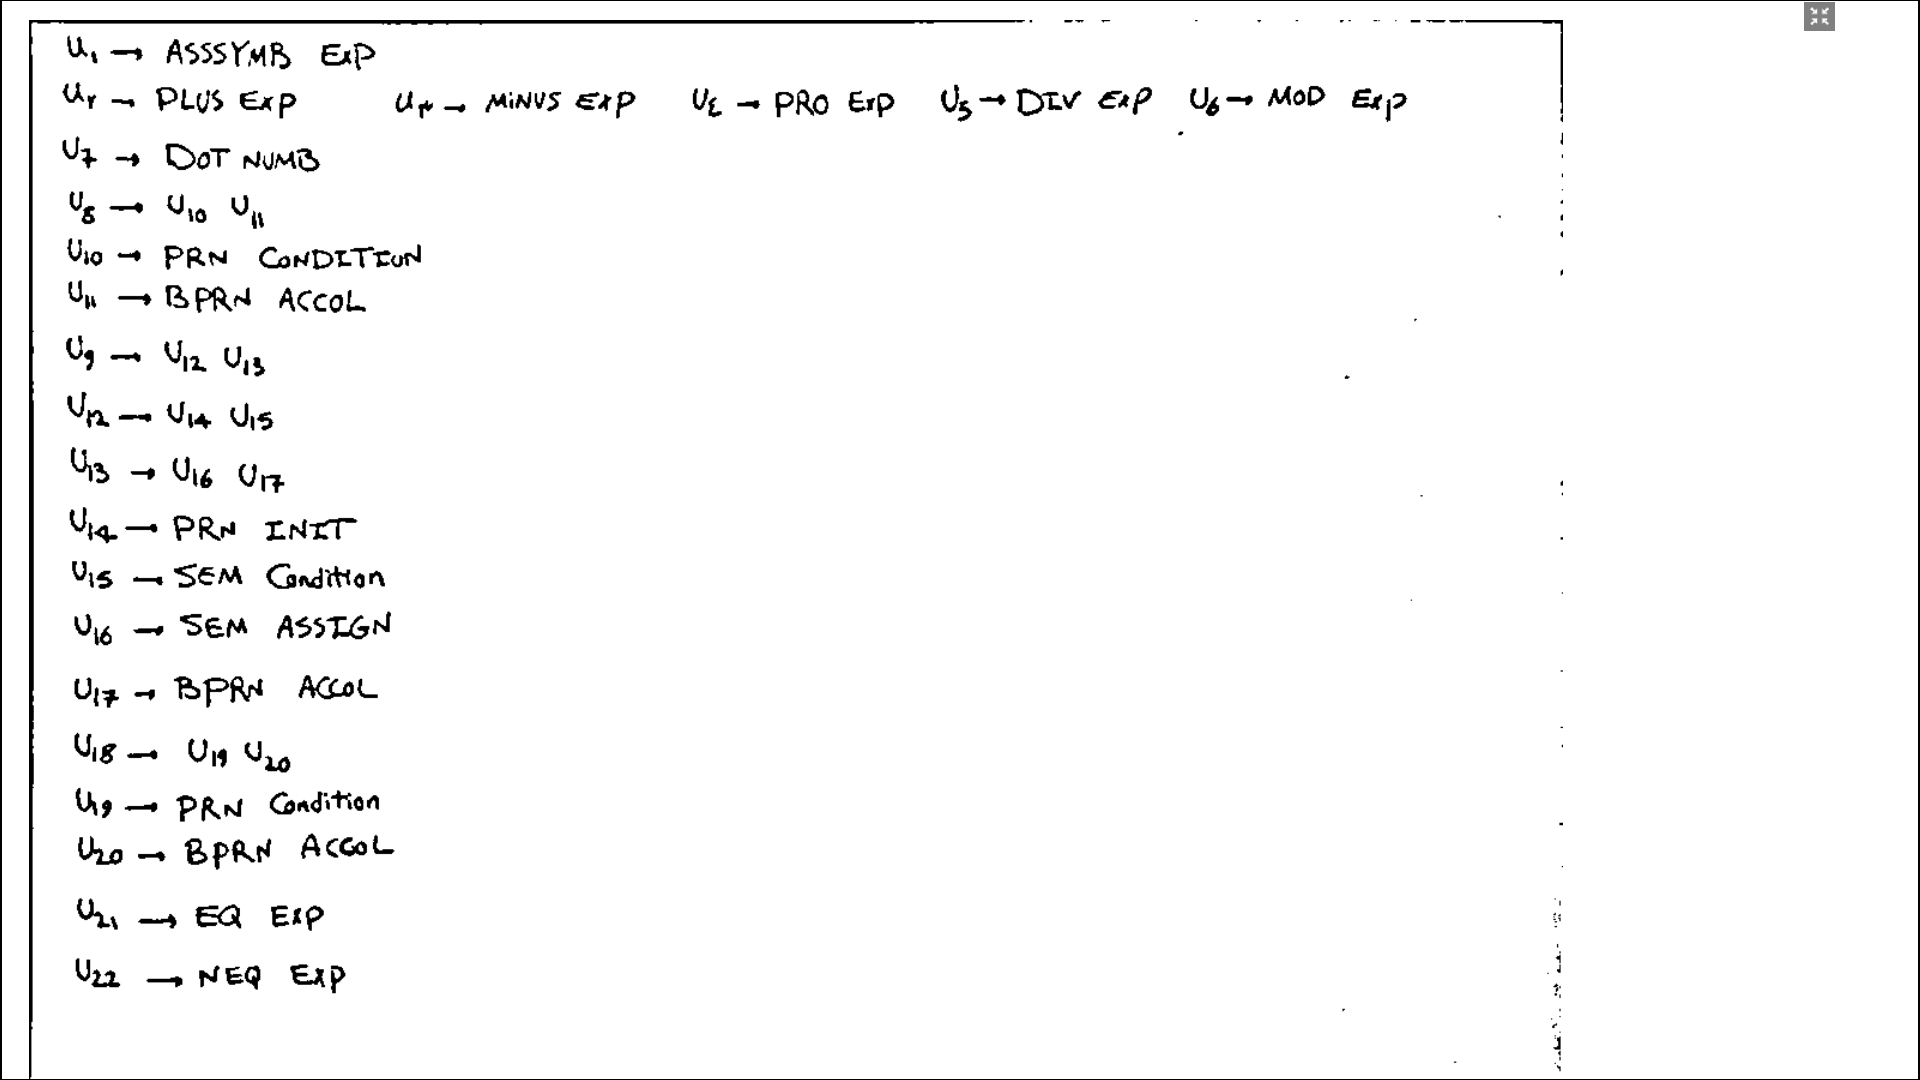 U₁ → ASSSYMB EXP
U۲ → PLUS EXP U۳ → MINUS EXP U٤ → PRO EXP U₅ → DIV EXP U₆ → MOD EXP
U₇ → DOT NUMB
U₈ → U₁₀ U₁₁
U₁₀ → PRN CONDITION
U₁₁ → BPRN ACCOL
U₉ → U₁₂ U₁₃
U₁₂ → U₁₄ U₁₅
U₁₃ → U₁₆ U₁₇
U₁₄ → PRN INIT
U₁₅ → SEM Condition
U₁₆ → SEM ASSIGN
U₁₇ → BPRN ACCOL
U₁₈ → U₁₉ U₂₀
U₁₉ → PRN Condition
U₂₀ → BPRN ACCOL
U₂₁ → EQ EXP
U₂₂ → NEQ EXP